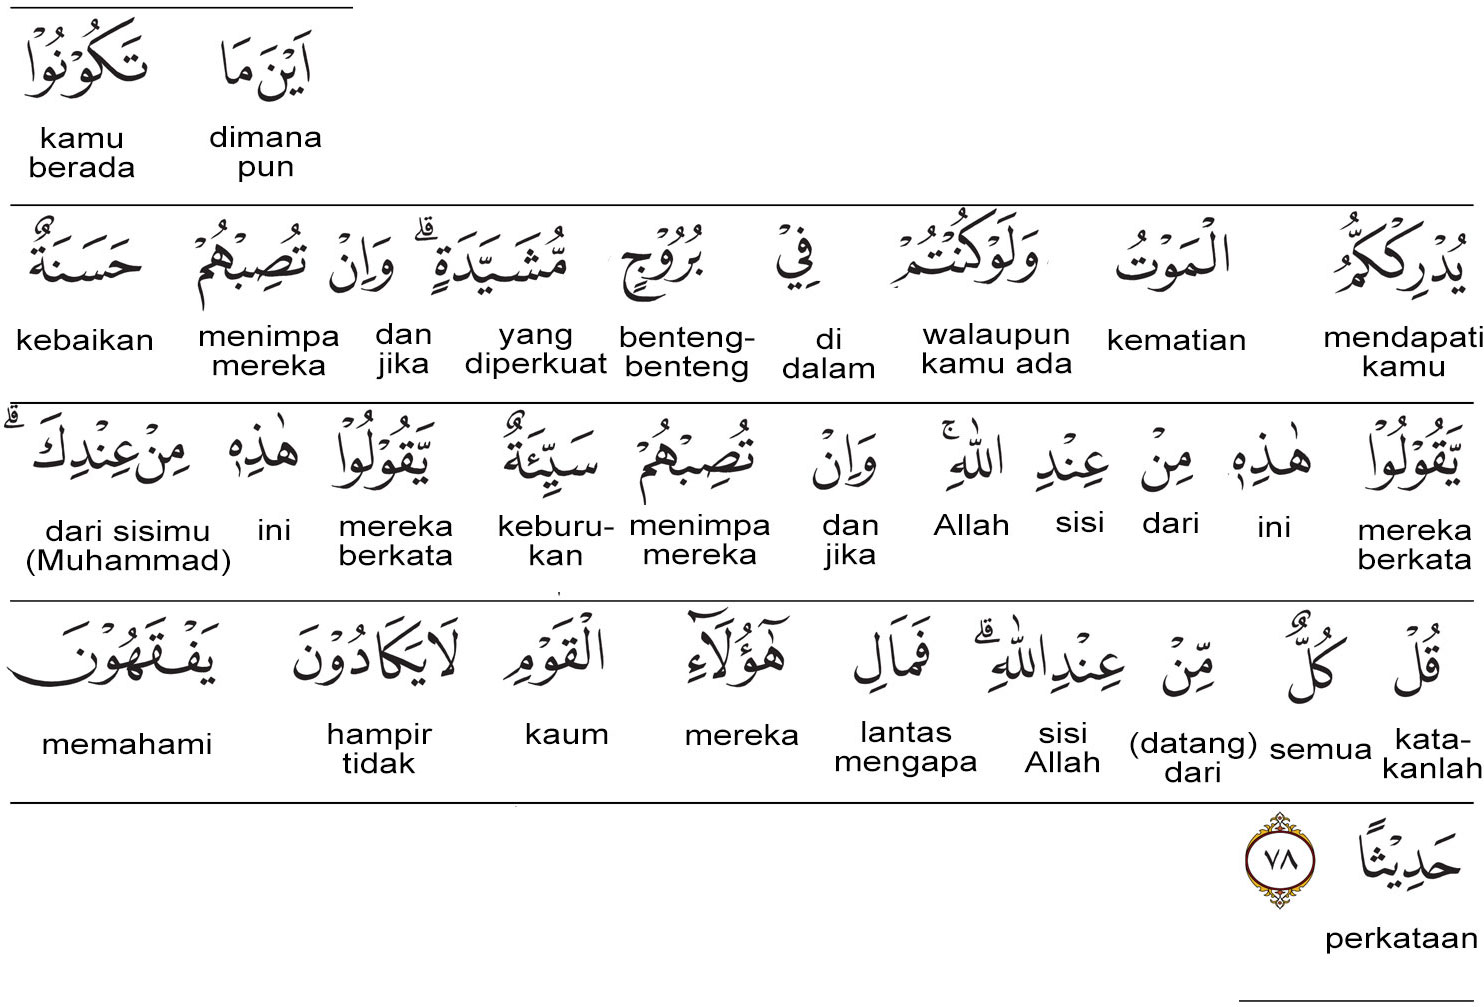 اَيْنَ مَا تَكُوْنُوْا
dimana pun kamu berada
يُدْرِكْكُّمُ الْمَوْتُ وَلَوْ كُنْتُمْ فِيْ بُرُوْجٍ مُّشَيَّدَةٍ ۗ وَاِنْ تُصِبْهُمْ حَسَنَةٌ
mendapati kamu kematian walaupun kamu ada di dalam benteng-benteng yang diperkuat dan jika menimpa mereka kebaikan
يَّقُوْلُوْا هٰذِهٖ مِنْ عِنْدِ اللّٰهِ ۚ وَاِنْ تُصِبْهُمْ سَيِّئَةٌ يَّقُوْلُوْا هٰذِهٖ مِنْ عِنْدِكَ ۗ
mereka berkata ini dari sisi Allah dan jika menimpa mereka keburu-kan mereka berkata ini dari sisimu (Muhammad)
قُلْ كُلٌّ مِّنْ عِنْدِ اللّٰهِ ۗ فَمَالِ هٰٓؤُلَاۤءِ الْقَوْمِ لَا يَكَادُوْنَ يَفْقَهُوْنَ
kata-kanlah semua (datang) dari sisi Allah lantas mengapa mereka kaum hampir tidak memahami
حَدِيْثًا ٧٨
perkataan